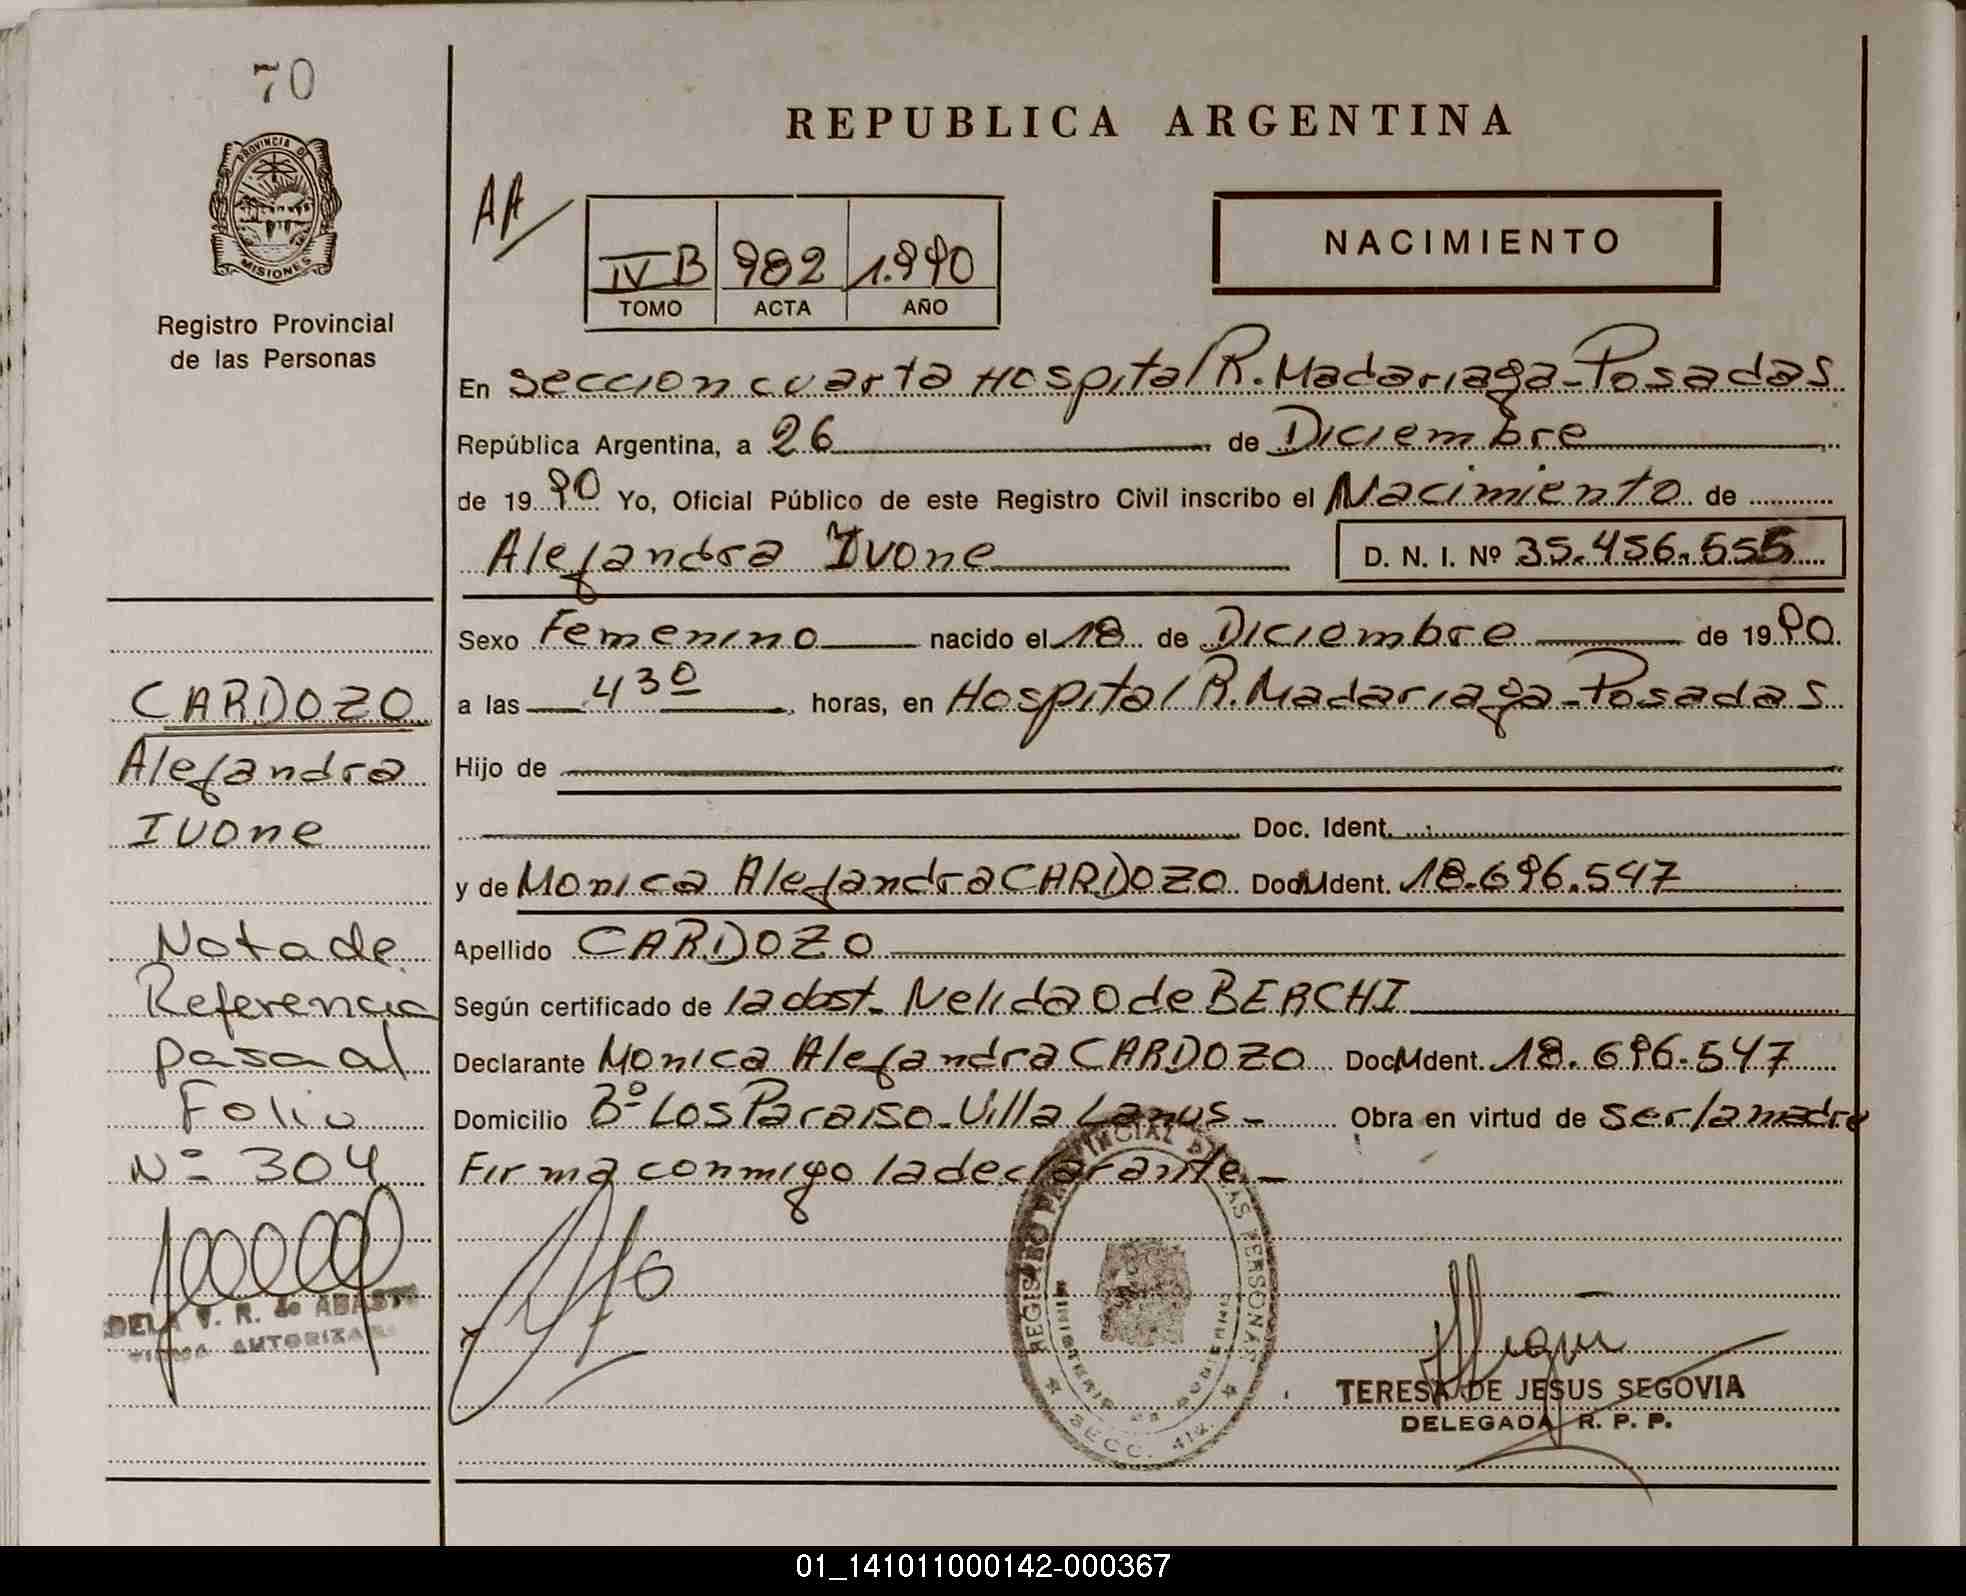 70
PROVINCIA DE
MISIONES
Registro Provincial
de las Personas
CARDOZO
Alejandra
Ivone
Nota de
Referencia
pasa al
Folio
Nº 304
REPUBLICA ARGENTINA
AA/
IV B 982 1.990
TOMO ACTA AÑO
NACIMIENTO
En seccion cuarta Hospital R. Madariaga-Posadas
República Argentina, a 26 de Diciembre
de 1990 Yo, Oficial Público de este Registro Civil inscribo el Nacimiento de
Alejandra Ivone D. N. I. Nº 35.456.555
Sexo Femenino nacido el 18 de Diciembre de 1990.
a las 4 30 horas, en Hospital R. Madariaga-Posadas
Hijo de
Doc. Ident.
y de Monica Alejandra CARDOZO Doc. Ident. 18.696.547
Apellido CARDOZO
Según certificado de la obst. Nelida O de BERCHI
Declarante Monica Alejandra CARDOZO Doc. Ident. 18.696.547
Domicilio Bº Los Paraiso-Villa Lanus- Obra en virtud de ser la madre
Firma conmigo la declarante.-
REGISTRO PROVINCIAL DE LAS PERSONAS
MINISTERIO DE GOBIERNO
SECC. 4ta.
TERESA DE JESUS SEGOVIA
DELEGADA R. P. P.
01_141011000142-000367